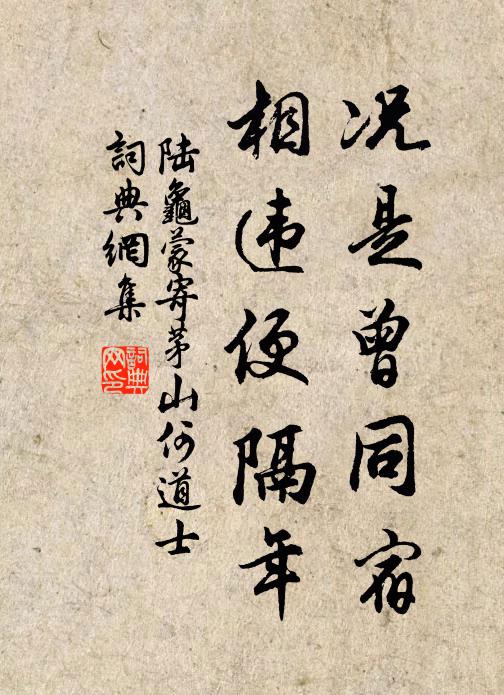 况是曾同宿
相违便隔年
陆龜蒙寄茅山何道士
詞典網集
詞典網印